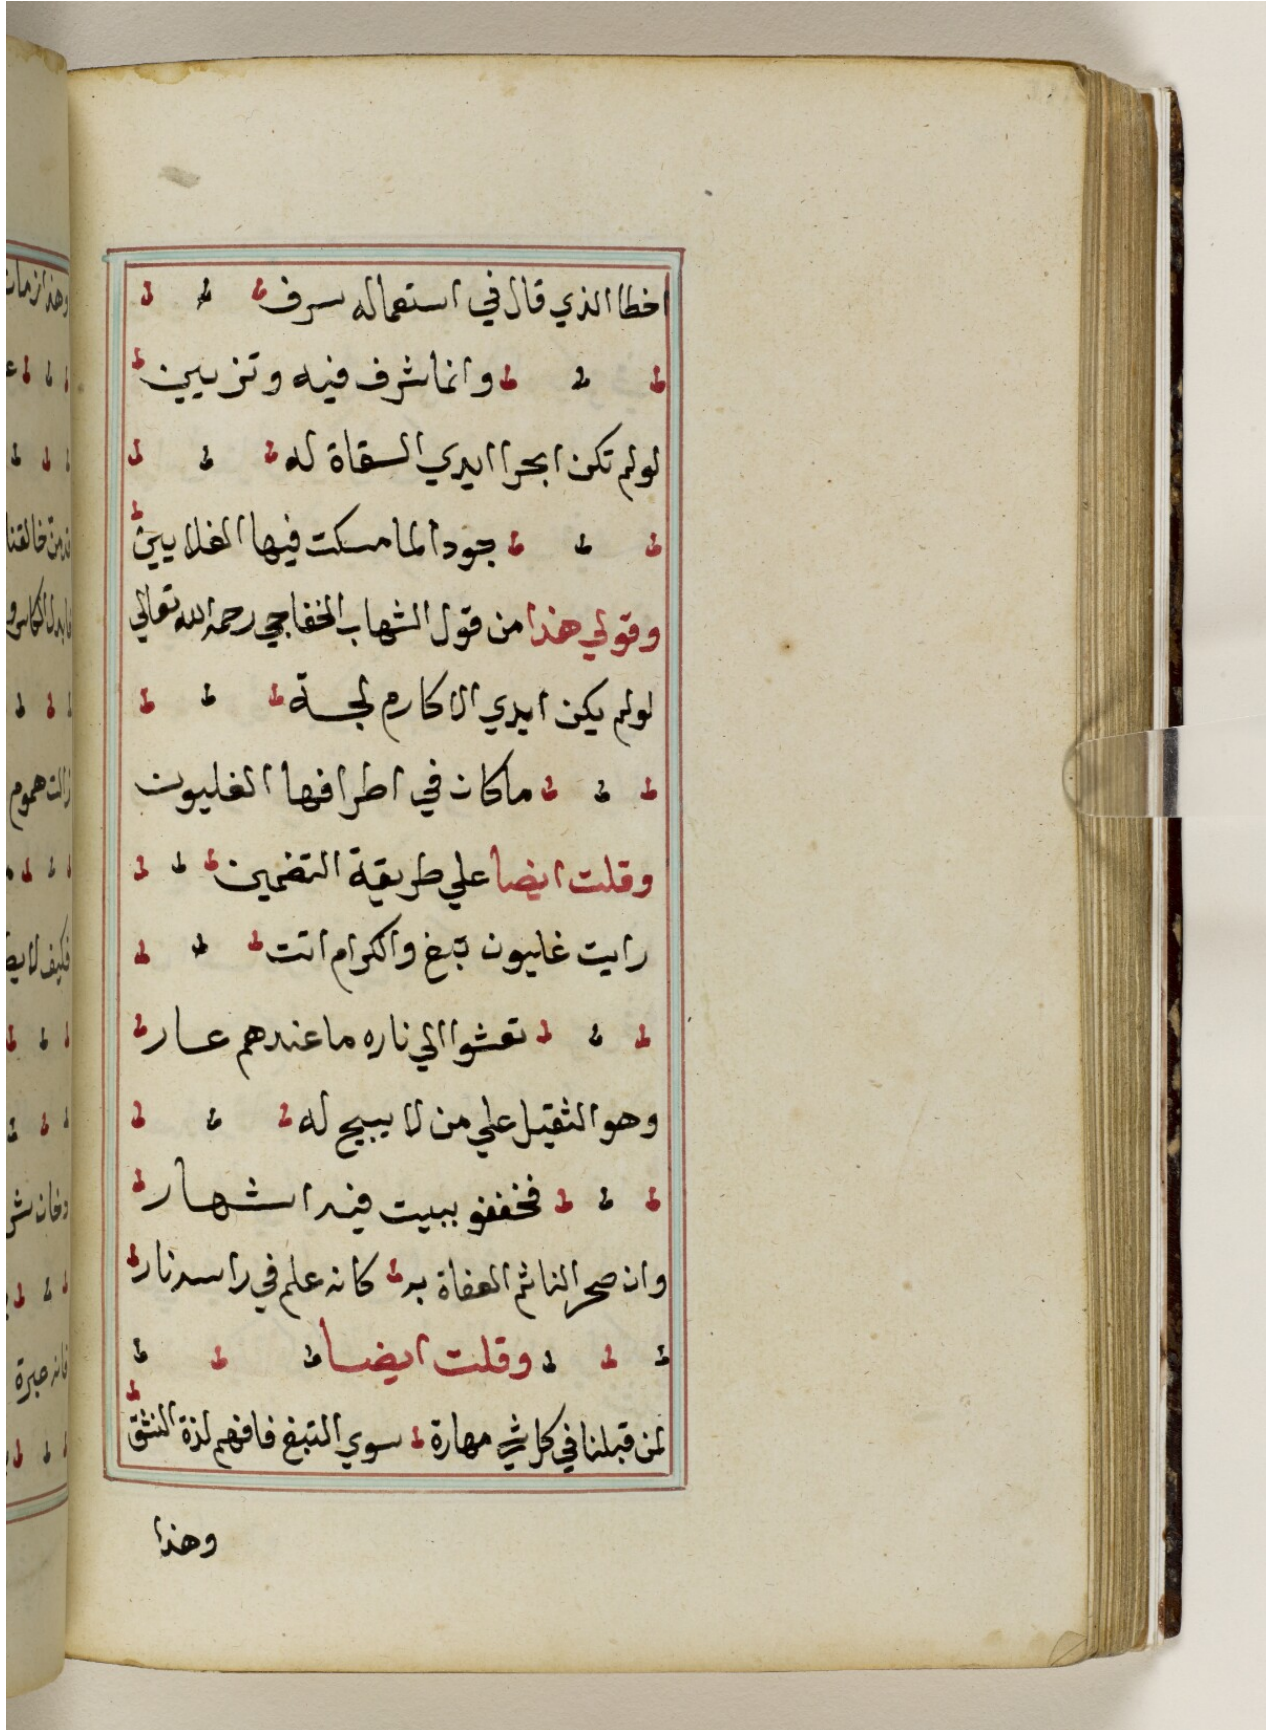 اخطا الذي قال في استعماله سرف
وانما شرف فيه وتزيين
لو لم تكن ابحرا ايدي السقاة له
جودا لما مسكت فيها الغلايين
وقولي هذا من قول الشهاب الخفاجي رحمه الله تعالي
لو لم يكن ايدي الاكارم لجة
ماكان في اطرافها الغليون
وقلت ايضا علي طريقة التضمين
رايت غليون تبغ والكرام اتت
تعشوا الي ناره ما عندهم عار
وهو الثقيل علي من لا يبيح له
فخففو ببيت فيه اشهار
وان صخر التاتم العفاة به كانه علم في راسه نار
وقلت ايضا
لمن قبلنا في كل شي مهارة سوي التبغ فافهم لذة النشق
وهذا